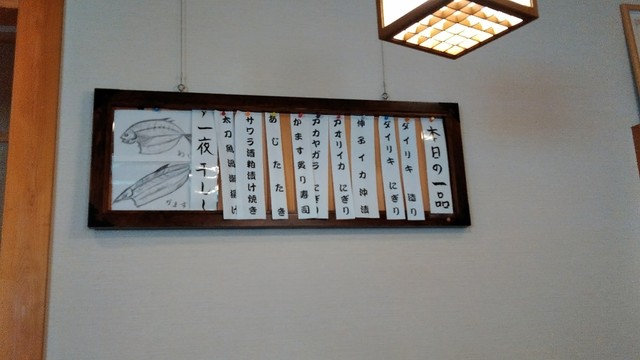 本日の一品
ダイリキ 造り
ダイリキ にぎり
イカ 沖漬
アオリイカ にぎり
アカヤガラ にぎり
かます炙り寿司
あじたたき
サワラ酒粕漬け焼き
太刀魚
一夜干し